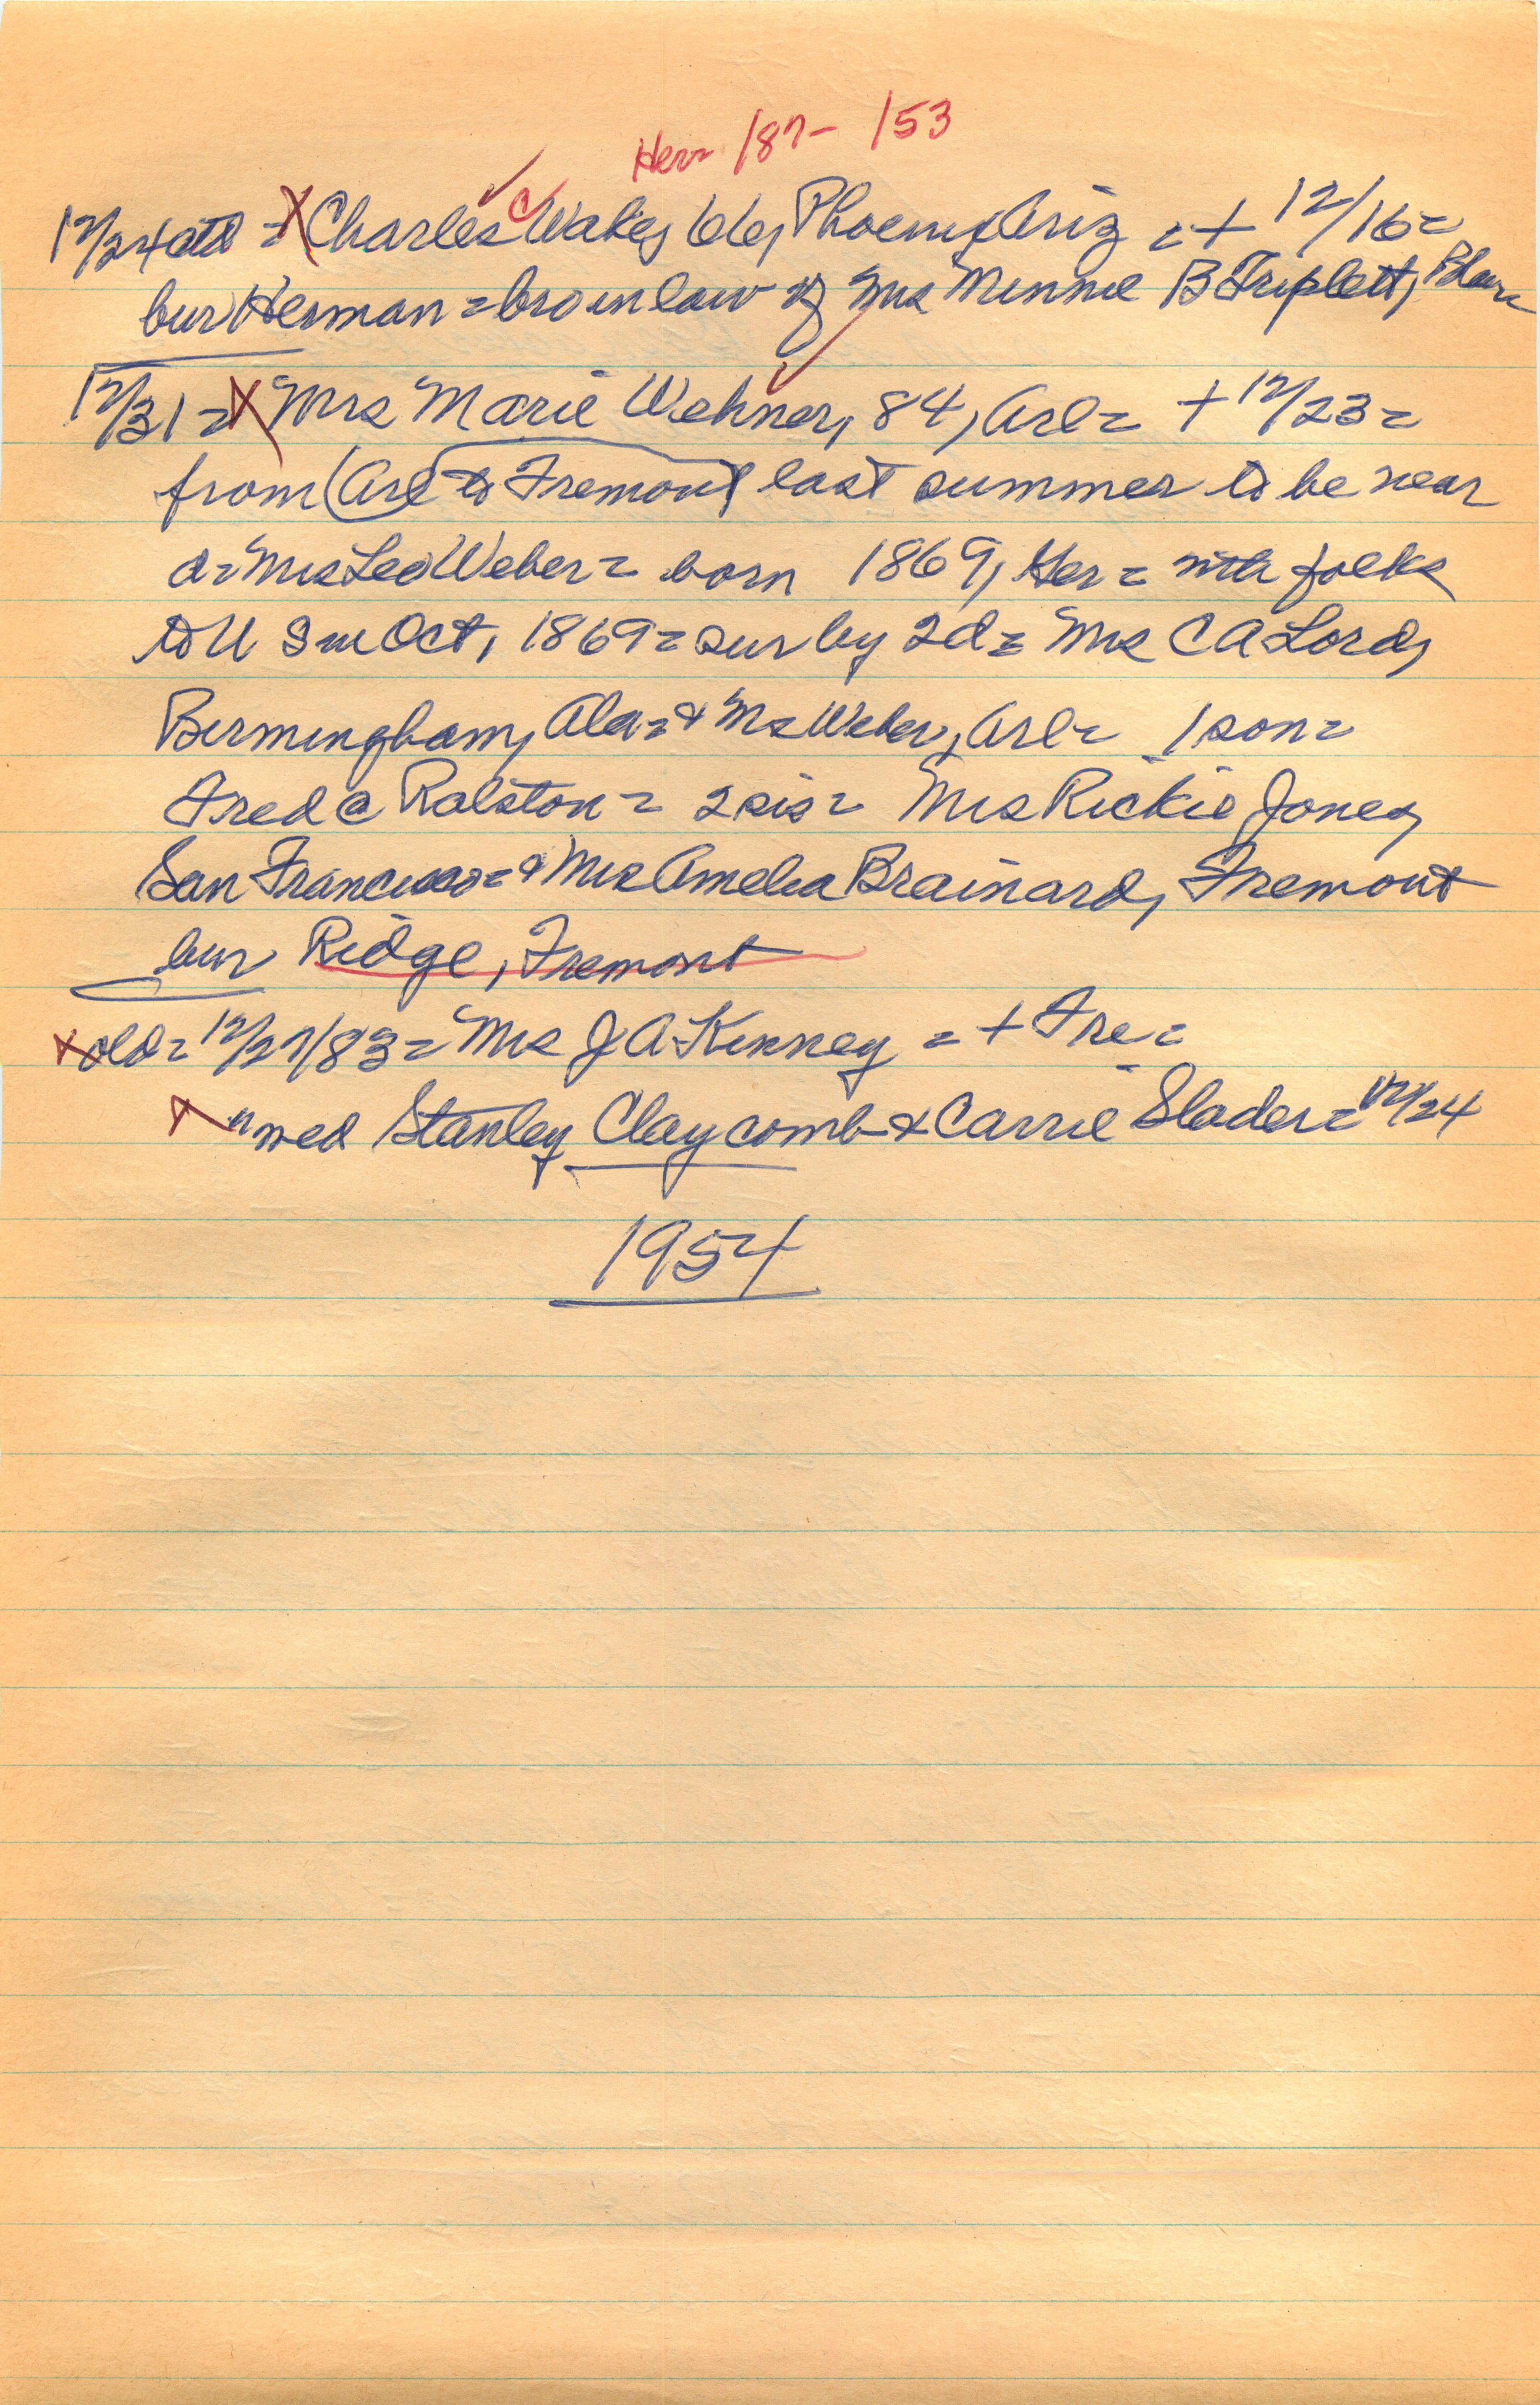 Her 187- 153
12/24 = X Charles C Wake, 66, Phoenix, Ariz = + 12/16 =
bur Herman = bro in law of Mrs Minnie B Triplett, Blair
12/31 = X Mrs Marie Wehner, 84, Arl = + 12/23 =
from Arl to Fremont last summer to be near
d = Mrs Leo Weber = born 1869, Ger = with folks
to U S in Oct, 1869 = sur by 2d = Mrs C A Lord,
Birmingham, Ala = & Mrs Weber, Arl = 1 son =
Fred @ Ralston = 2 sis = Mrs Rickie Jones,
San Francisco = & Mrs Amelia Brainard, Fremont
bur Ridge, Fremont
X old = 12/27/83 = Mrs J A Kinney = + Fre =
X " wed Stanley Claycomb & Carrie Slader = 12/24
1954